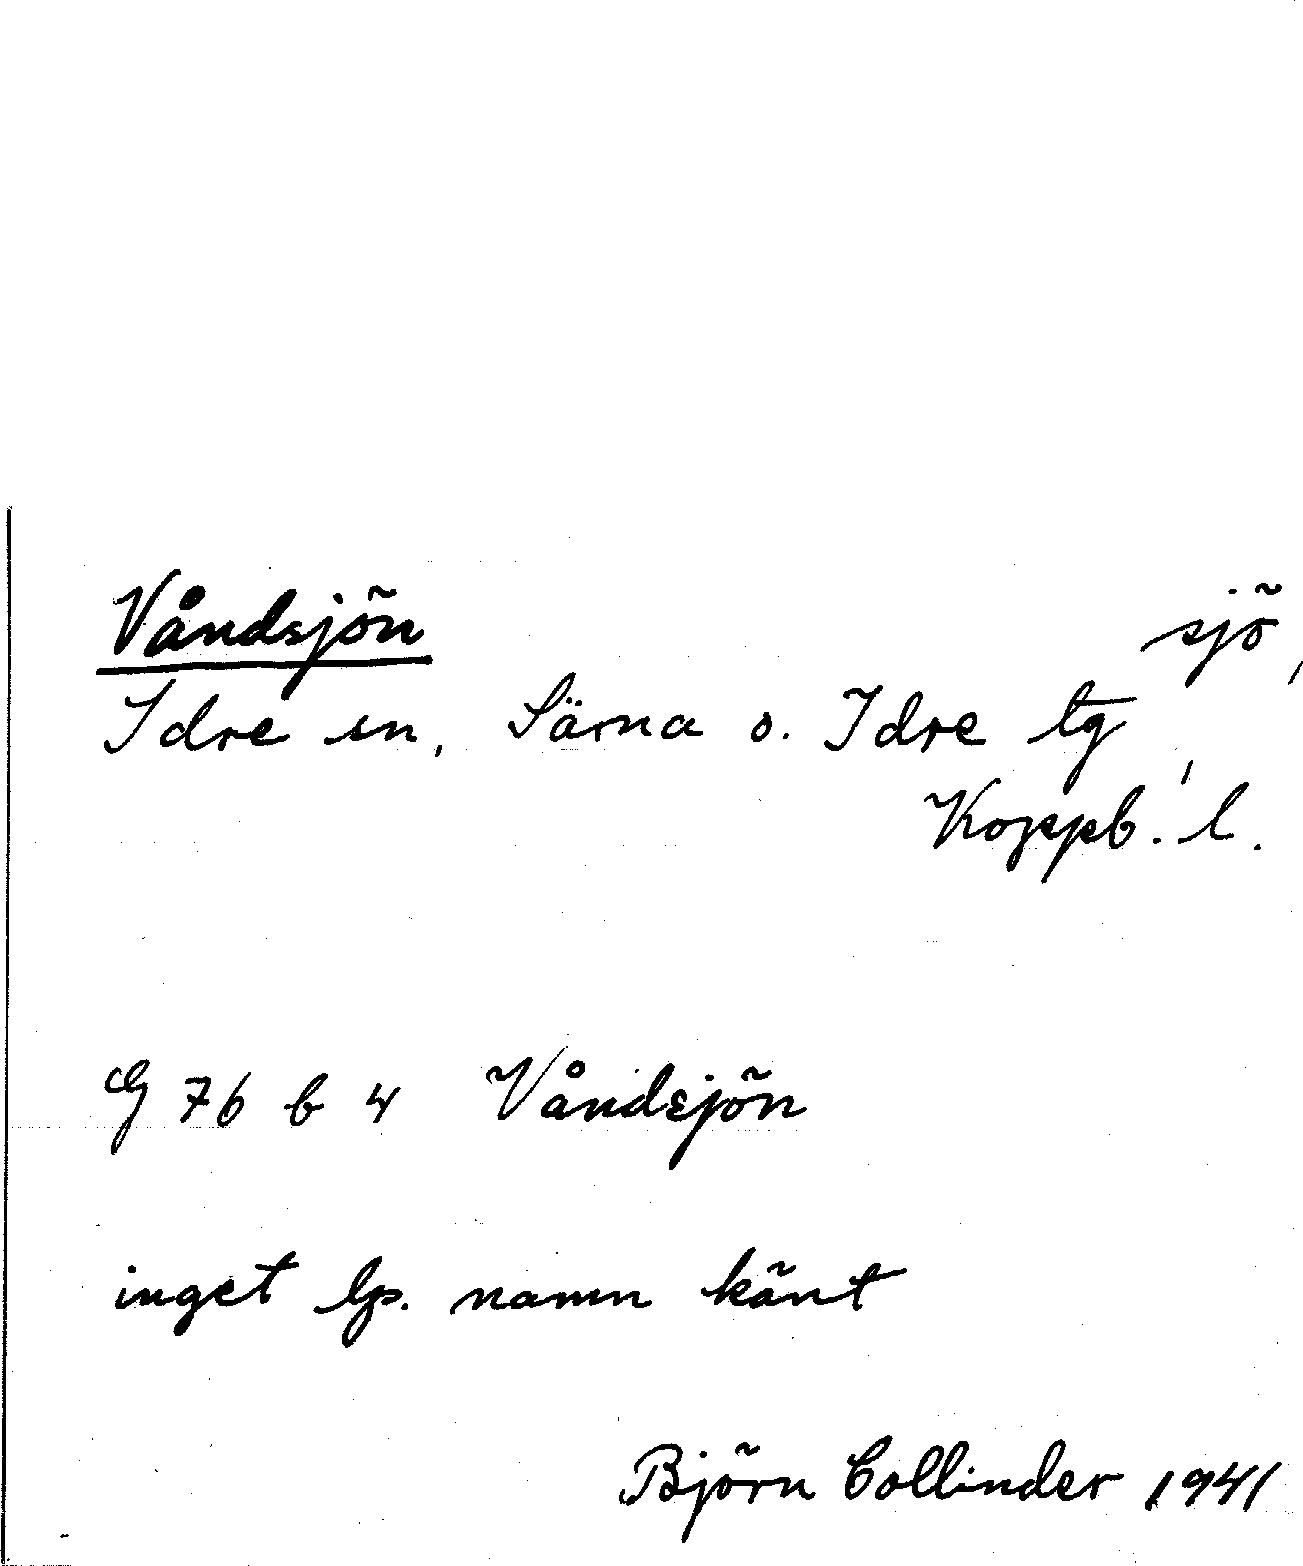 Våndsjön sjö,
Idre sn, Särna o. Idre tg,
Koppb. l.
G 76 b 4 Våndsjön
inget lp. namn känt
Björn Collinder 1941